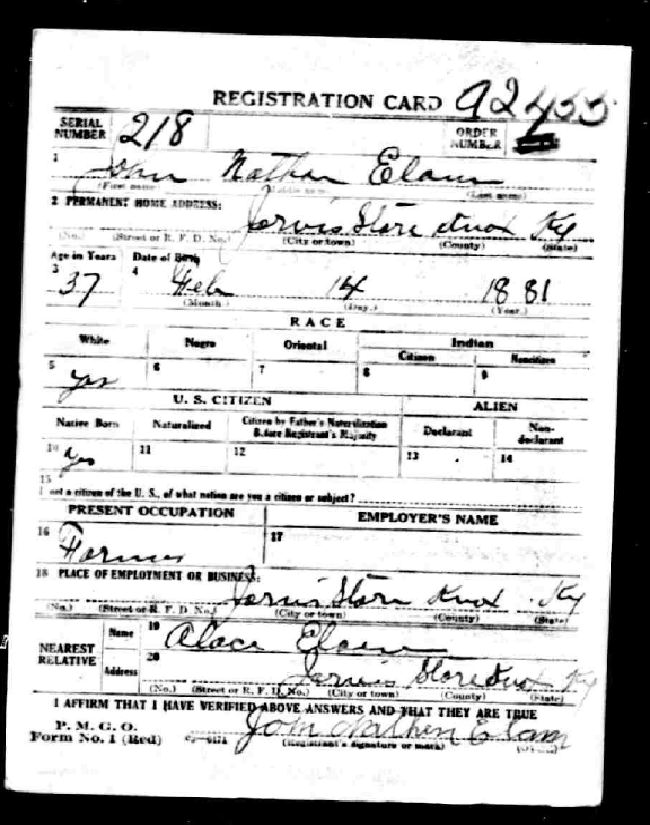 REGISTRATION CARD
SERIAL NUMBER 218 ORDER NUMBER
1 John Nathan Elam
(First name) (Middle name) (Last name)
2 PERMANENT HOME ADDRESS: Jarvis Store Knox Ky
(No.) (Street or R. F. D. No.) (City or town) (County) (State)
Age in Years Date of Birth
3 37 4 Feb 14 1881
(Month) (Day.) (Year.)
RACE
White Negro Oriental Indian
Citizen Noncitizen
5 yes 6 7 8 9
U. S. CITIZEN ALIEN
Native Born Naturalized Citizen by Father's Naturalization Before Registrant's Majority Declarant Non-declarant
10 yes 11 12 13 14
15
not a citizen of the U. S., of what nation are you a citizen or subject?
PRESENT OCCUPATION EMPLOYER'S NAME
16 Farmer 17
18 PLACE OF EMPLOYMENT OR BUSINESS: Jarvis Store Knox Ky
(No.) (Street or R. F. D. No.) (City or town) (County) (State)
NEAREST RELATIVE Name 19 Elam
Address 20 Jarvis Store Knox Ky
(No.) (Street or R. F. D. No.) (City or town) (County) (State)
I AFFIRM THAT I HAVE VERIFIED ABOVE ANSWERS AND THAT THEY ARE TRUE
P. M. G. O.
Form No. 1 (Red) John Nathen Elam
(Registrant's signature or mark)